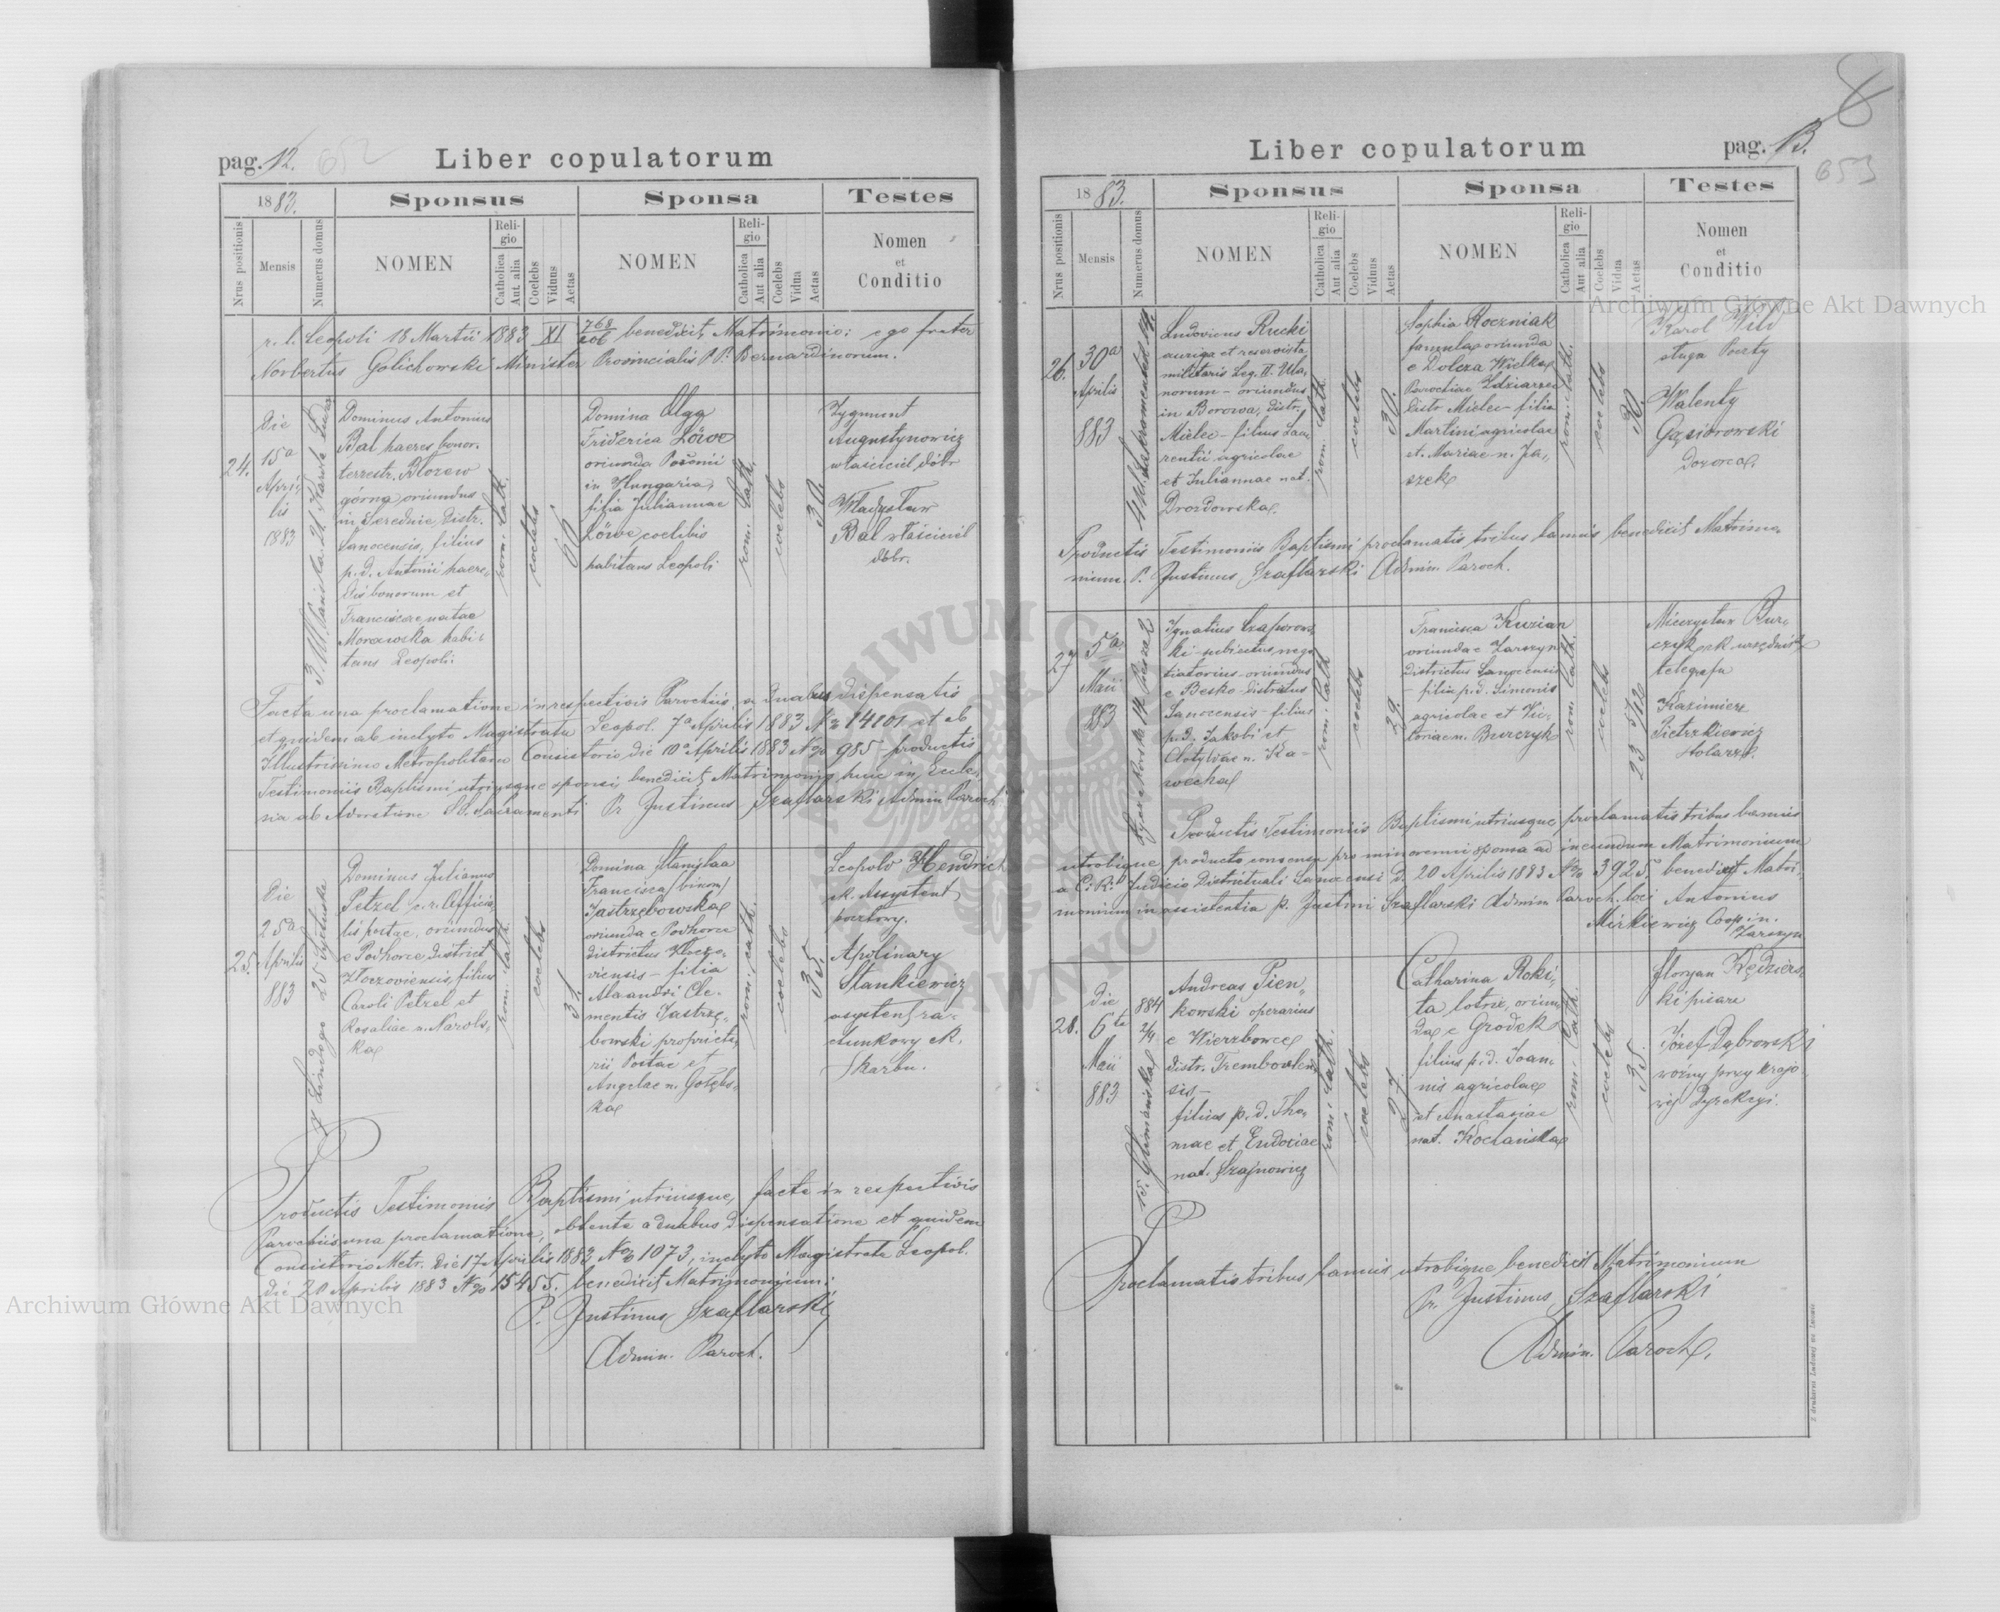 pag. 12.
652
Liber copulatorum
1883.
Sponsus
Sponsa
Testes
Nrus positionis
Mensis
Numerus domus
NOMEN
Religio
Catholica
Aut alia
Coelebs
Viduus
Aetas
NOMEN
Religio
Catholica
Aut alia
Coelebs
Vidua
Aetas
Nomen
et
Conditio
r. l. Leopoli 18 Martii 1883 XI 768/206 benedicit Matrimonio: ego frater
Norbertus Golichowski Minister Provincialis P.P. Bernardinorum.
24.
Die
15a
Apri-
lis
1883
Dominus Antonius
Bal haeres bonor.
terrestr. Blozew
gorna, oriundus
in Serednie, Distr.
Sanocensis, filius
p. d. Antonii haere-
dis bonorum et
Franciscae natae
Morawska habi-
tans Leopoli
rom. cath.
coelebs
60
Domina Olga
Friderica Löwe
oriunda Posonii
in Hungaria,
filia Juliannae
Löwe coelibis
habitans Leopoli
rom. Cath.
coelebs
30
Zygmunt
Augustynowicz
właściciel dóbr
Władysław
Bal właściciel
dóbr.
Facta una proclamatione in respectivis Parochiis, a duabus dispensatis
et quidem ab inclyto Magistratu Leopol. 7a Aprilis 1883 No 14101 et ab
Illustrissimo Metropolitano Consistorio die 10a Aprilis 1883 No 985 - productis
Testimoniis Baptismi utriusque sponsi, benedicit Matrimonio, huic in Eccle-
sia ab Adoratione SS. Sacramenti Pr Justinus Szaflarski Admin Paroch.
25.
Die
25a
Aprilis
883
Dominus Julianus
Petzel c. r. Officia-
lis postae, oriundus
e Podhorce, District
Złoczoviensis, filius
Caroli Petzel et
Rosaliae n. Narols-
ka
rom. cath.
coelebs
31.
Domina Stanislaa
Francisca /binom/
Jastrzębowska
oriunda e Podhorce
districtus Złoczo-
viensis - filia
Alexandri Cle-
mentis Jastrzę-
bowski proprieta-
rii Postae et
Angelae n. Gołębs-
ka
rom. cath.
coelebs
35.
Leopold Hendrich
ck. Assystent
pocztowy.
Apolinary
Stankiewicz
asystent ra-
chunkowy ck.
Skarbu.
Productis Testimoniis Baptismi utriusque, facta in respectivis
Parochiis una proclamatione, obtenta a duabus dispensatione et quidem
Consistorio Metr. die 17 Aprilis 1883 No 1073, inclyto Magistratu Leopol.
die 20 Aprilis 1883 No 15455. benedicit Matrimonium:
P. Justinus Szaflarski
Admin. Paroch.
8
Liber copulatorum
pag. 13.
653
1883.
Sponsus
Sponsa
Testes
Nrus positionis
Mensis
Numerus domus
NOMEN
Religio
Catholica
Aut alia
Coelebs
Viduus
Aetas
NOMEN
Religio
Catholica
Aut alia
Coelebs
Vidua
Aetas
Nomen
et
Conditio
26.
30a
Aprilis
883
Ludovicus Rucki
auriga et reservista
militaris Leg. II. Ula-
norum - oriundus
in Borowa, distr.
Mielec - filius Lau-
rentii agricolae
et Juliannae nat.
Drozdowska
rom. cath.
coelebs
30.
Sophia Roczniak
famula oriunda
e Dolcza Wielka
Parochiae Zdziarzec
Distr Mielec - filia
Martini agricolae
et Mariae n. Ja-
szek
rom. cath.
coelebs
30.
Karol Wild
sługa Poczty
Walenty
Gąsiorowski
dozorca.
Productis Testimoniis Baptismi proclamatis tribus bannis benedicit Matrimo-
nium. P. Justinus Szaflarski Admin. Paroch.
27
5a
Maii
883
Ignatius Szaporow-
ki subiectus nego-
tiatorius - oriundus
e Besko Districtus
Sanocensis - filius
p. d. Jakobi et
Clotyldae n. Ka-
wecka
rom. Cath
coelebs
29.
Francisca Kuzian
oriunda e Zarszyn
Districtus Sanocensis
- filia p. d. Simonis
agricolae et Vic-
toriae n. Burczyk
rom. Cath.
coelebs
23 5/12
Mieczysław Bur-
czyk ck urzędnik
telegrafu
Kazimierz
Pietrzkiewicz
stolarz.
Productis Testimoniis Baptismi utriusque, proclamatis tribus bannis
utrobique, producto consensu pro minorenni sponsa ad ineundum Matrimonium
a C. R. Judicio Districtuali Sanocensi d. 20 Aprilis 1883 No 3925. benedixit Matri-
monium in assistentia p. Justini Szaflarski Admin Paroch. loci Antonius
Mirkiewicz Coop. in.
Zarszyn
28.
Die
6ta
Maii
883
884 2/4
Andreas Pien-
kowski operarius
e Wierzbowce
distr. Trembowlen-
sis -
filius p. d. Tho-
mae et Eudociae
nat. Szajnowicz
rom. cath.
coelebs
27
Catharina Roki-
ta lotrix, oriun-
da e Grodek
filius p. d. Joan-
nis agricolae
et Anastasiae
nat. Kochańska
rom. Cath.
coelebs
35.
Floryan Kędziers-
ki pisarz
Józef Dąbrowski
woźny przy krajo-
wej Dyrekcyi.
Proclamatis tribus bannis utrobique, benedicit Matrimonium
Pr. Justinus Szaflarski
Admin. Paroch.
Z drukarni Ludowej we Lwowie
Archiwum Główne Akt Dawnych
Archiwum Główne Akt Dawnych